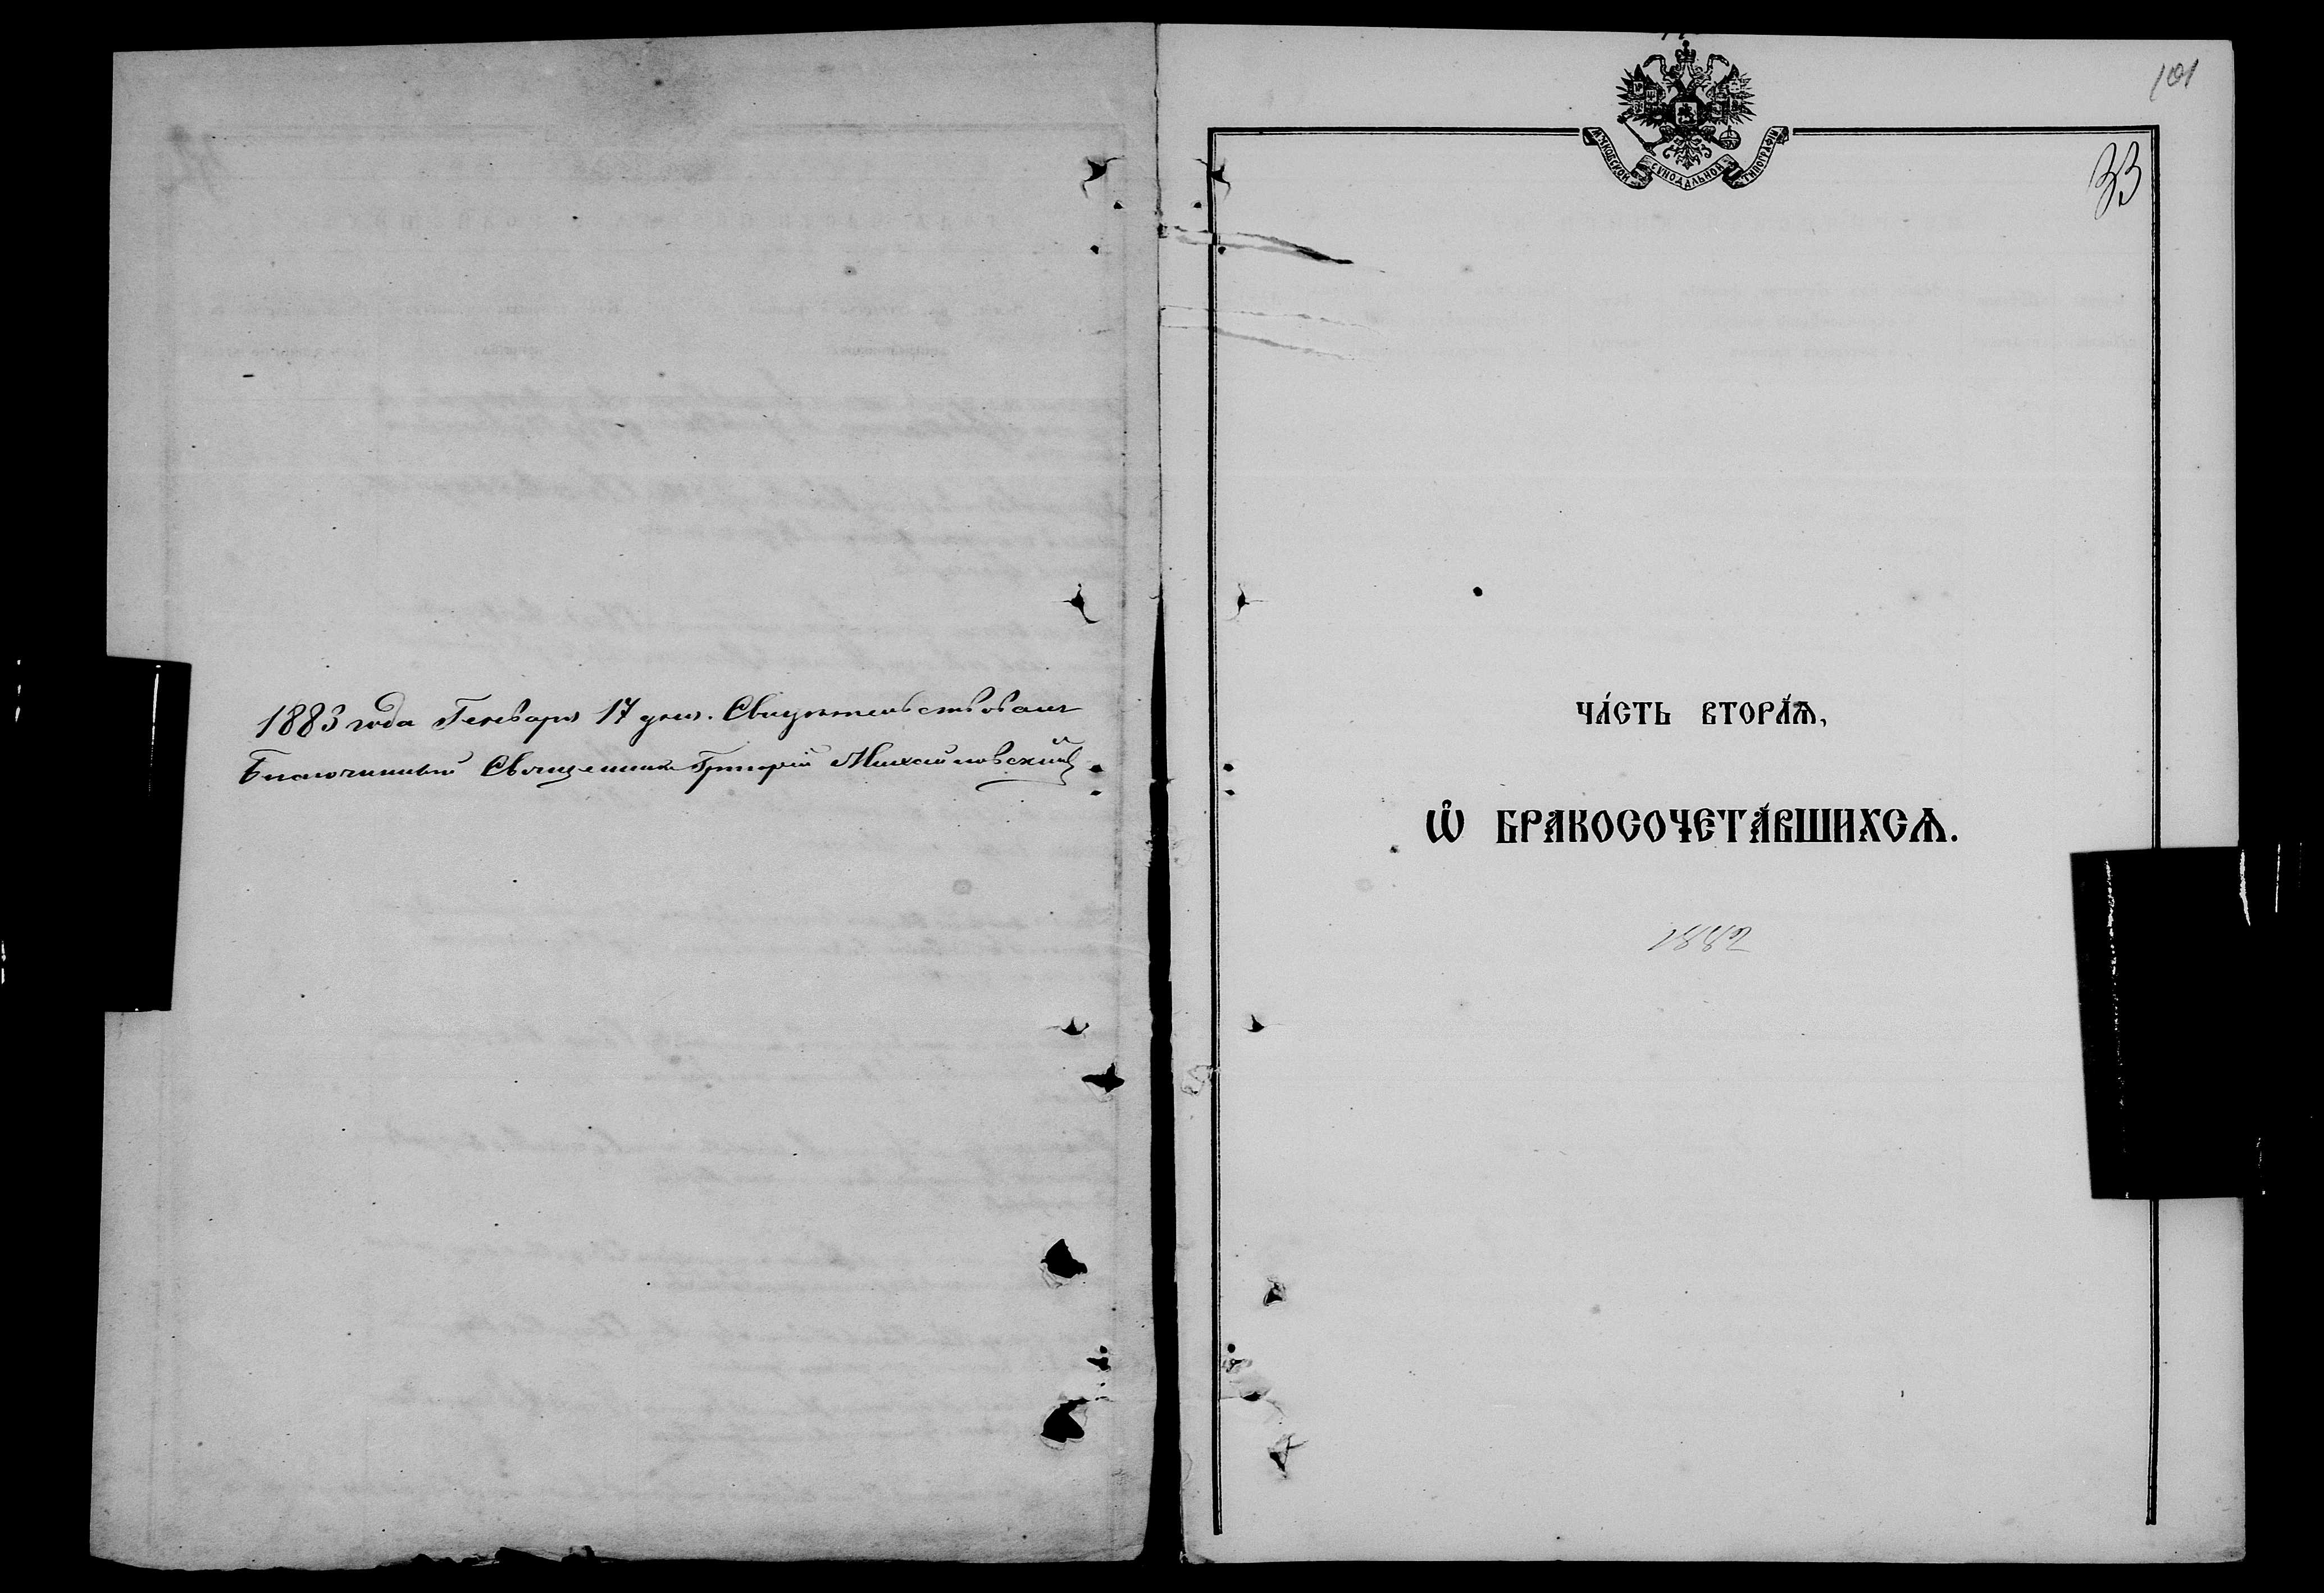 1883 года Генваря 17 дня. Свидетельствовалъ
Благочинный Священникъ Григорій Михайловскій
101
МОСКОВСКОЙ СѴНОДАЛЬНОЙ ТИПОГРАФІИ
33
ЧА́СТЬ ВТОРА́Ѧ,
Ѡ҆ БРАКОСОЧЕТА́ВШИХСѦ.
1882